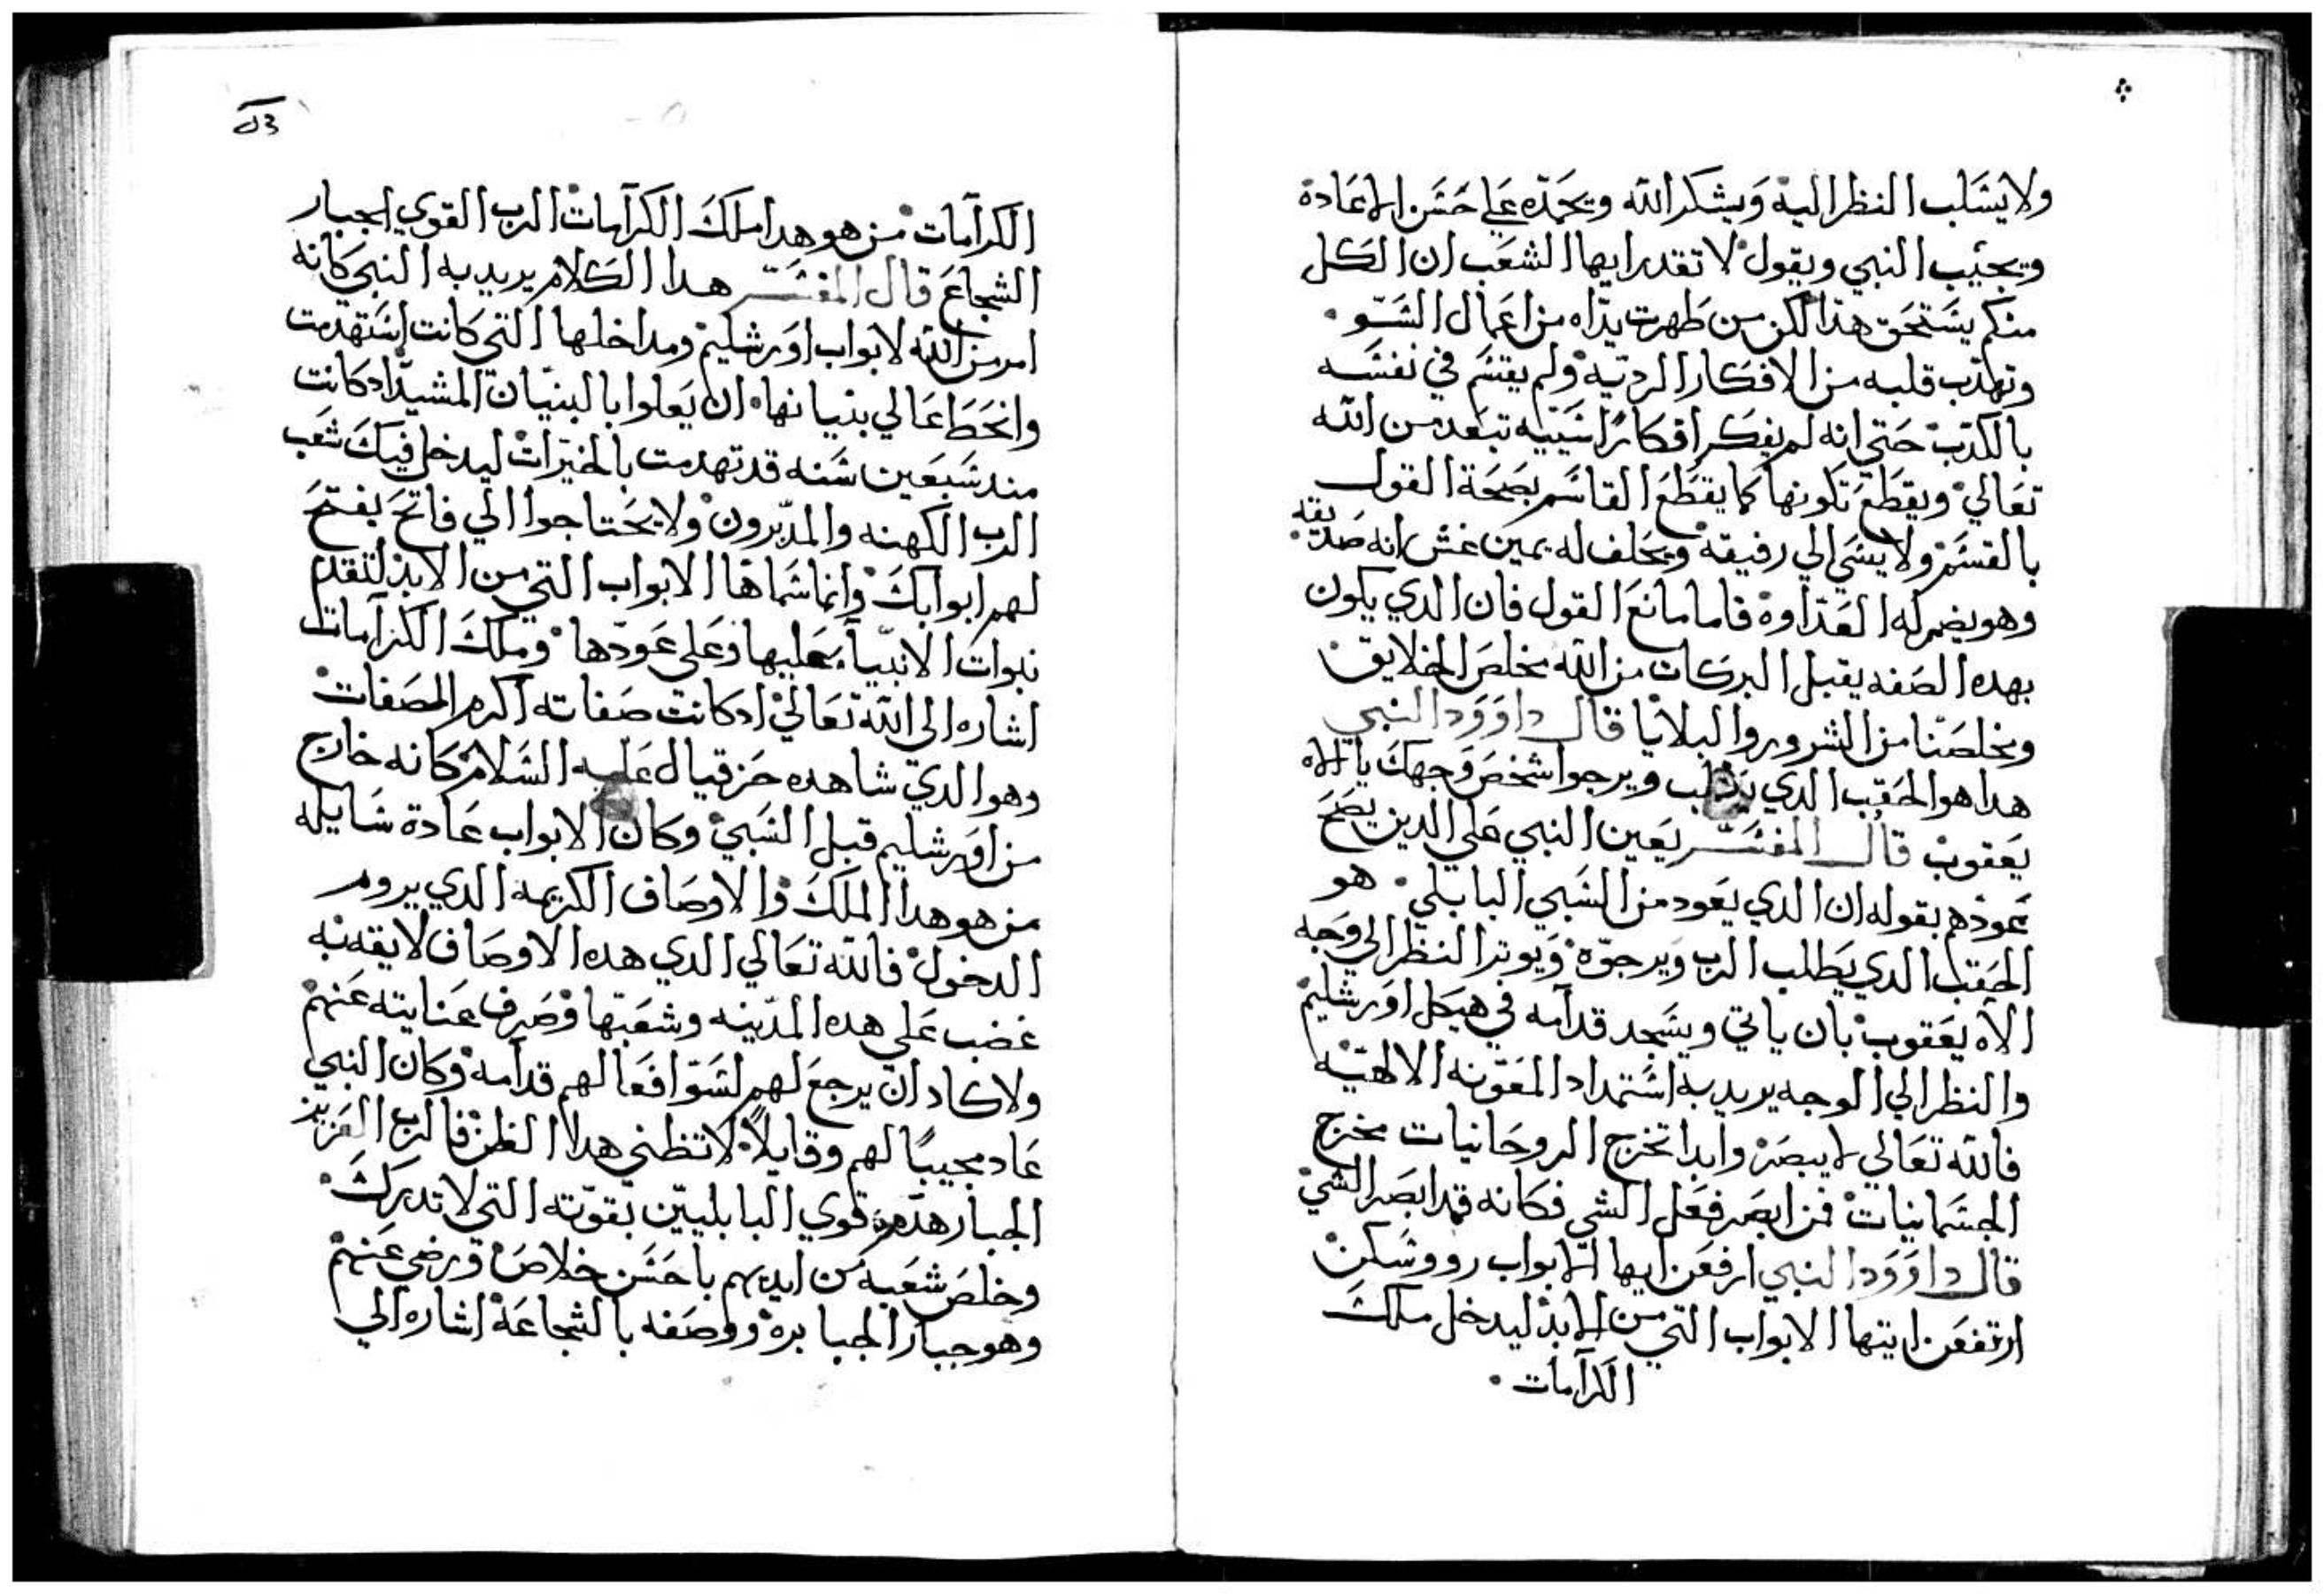 ولا يسلب النظر اليه ويشكر الله ويحمده علي حسن الاعادة
ويجيب النبي ويقول لا تقدر ايها الشعب ان الكل
منكم يستحق هذا لكن من طهرت يداه من اعمال السو
وتهذب قلبه من الافكار الرديه ولم يقسم في نفسه
بالكذب حتي انه لم يفكر افكارًا سييه تبعد من الله
تعالي ويقطع تكونها كما يقطع القاسم بصحة القول
بالقسم ولا يسي الي رفيقه ويحلف له يمين غش انه صديقه
وهو يضمر له العداوه فاما مانع القول فان الدي يكون
بهده الصفه يقبل البركات من الله مخلص الخلايق
ويخلصنا من الشرور والبلايا قال داوود النبي
هدا هو الحقب الدي يطلب ويرجوا شخص وجهك يا الاه
يعقوب قال المفسر يعين النبي علي الدين يصح
عودهم بقوله ان الدي يعود من السبي البابلي هو
الحقب الدي يطلب الرب ويرجوه ويوتر النظر الي وجه
الاه يعقوب بان ياتي ويسجد قدامه في هيكل اورشليم
والنظر الي الوجه يريد به استمداد المعونه الالهيه
فالله تعالي لا يبصر وابدا تخرج الروحانيات مخرج
الجسمانيات فمن ابصر فعل الشي فكانه قد ابصر الشي
قال داوود النبي ارفعن ايها الابواب رووسكن
ارتفعن ايتها الابواب التي من الابد ليدخل ملك
الكرامات
الكرامات من هو هدا ملك الكرامات الرب القوي الجبار
الشجاع قال المفسر هدا الكلام يريد به النبي كانه
امر من الله لابواب اورشليم ومداخلها التي كانت استهدمت
وانحط عالي بنيانها ان يعلوا بالبنيان المشيد اد كانت
مند سبعين سنه قد تهدمت بالخيرات ليدخل فيك شعب
الرب الكهنه والمدبرون ولا يحتاجوا الي فاتح يفتح
لهم ابوابك وانما سماها الابواب التي من الابد لتقدم
نبوات الانبيا عليها وعلي عودها وملك الكرامات
اشاره الي الله تعالي اد كانت صفاته اكرم الصفات
وهو الدي شاهده حزقيال عليه السلام كانه خارج
من اورشليم قبل السبي وكان الابواب عادة سايله
من هو هدا الملك دا الاوصاف الكريمه الدي يروم
الدخول فالله تعالي الدي هده الاوصاف لايقه به
غضب علي هده المدينه وشعبها وصرف عنايته عنهم
ولا كاد ان يرجع لهم لسو افعالهم قدامه وكان النبي
عاد مجيبًا لهم وقايلاً لا تظني هدا الظن فالرب العزيز
الجبار هدم قوي البابليين بقوته التي لا تدرك
وخلص شعبه من ايديهم باحسن خلاص ورضي عنهم
وهو جبار الجبابره ووصفه بالشجاعة اشاره الي